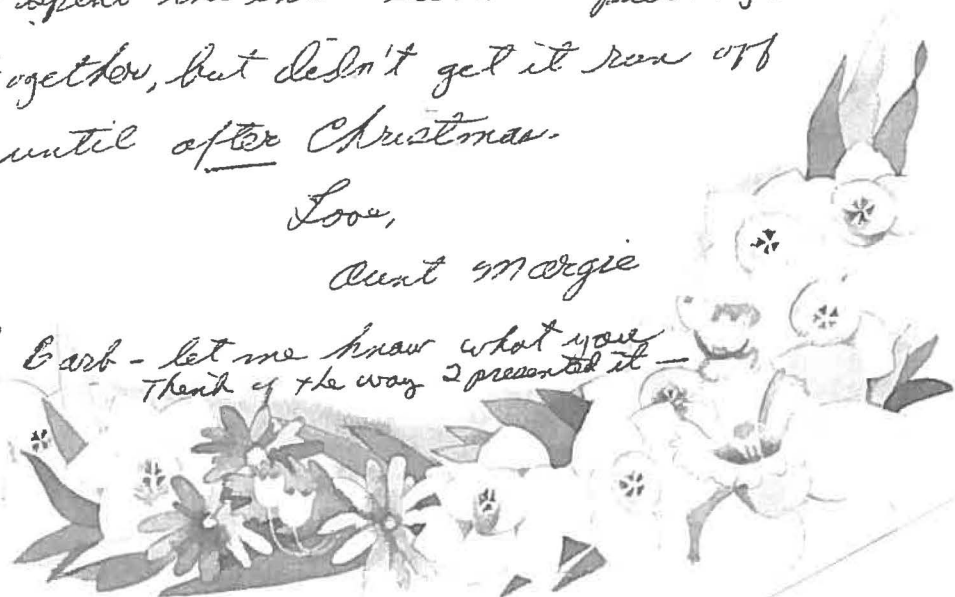 spent
together, but didn't get it run off
until after Christmas.
Love,
Aunt Margie
Barb - let me know what you
Think of the way I presented it —